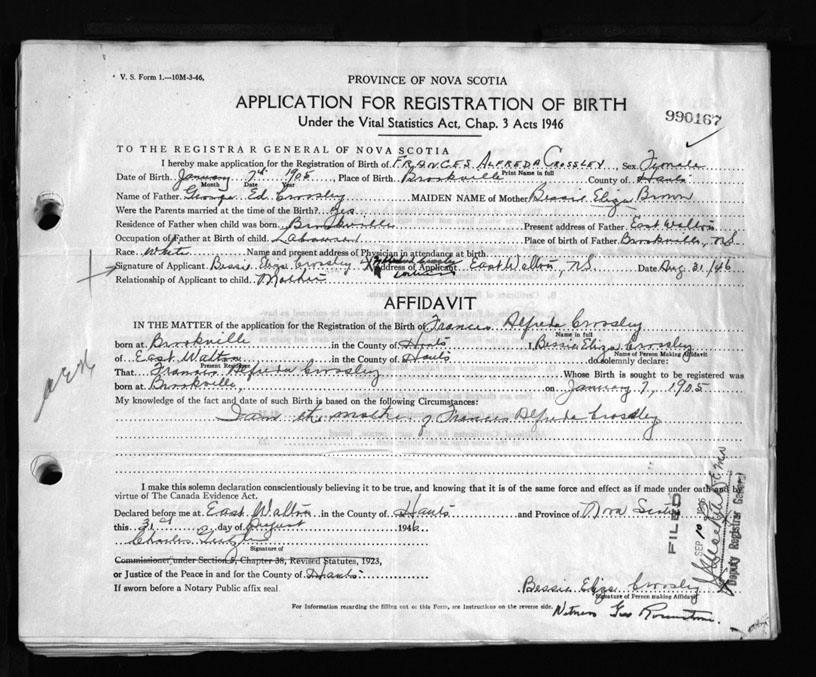 V. S. Form 1.—10M-3-46,
PROVINCE OF NOVA SCOTIA
APPLICATION FOR REGISTRATION OF BIRTH
Under the Vital Statistics Act, Chap. 3 Acts 1946
990167
TO THE REGISTRAR GENERAL OF NOVA SCOTIA
I hereby make application for the Registration of Birth of FRANCES ALFREDA CROSSLEY, Sex Female
Print Name in full
Date of Birth January 7th 1905, Place of Birth Brookville County of Hants
Month Date Year
Name of Father George Ed Crossley MAIDEN NAME of Mother Bessie Eliza Brown
Were the Parents married at the time of the Birth? Yes
Residence of Father when child was born Brookville Present address of Father East Walton
Occupation of Father at Birth of child Labourer Place of birth of Father Brookville, N.S.
Race White Name and present address of Physician in attendance at birth
Signature of Applicant Bessie Eliza Crossley Address of Applicant East Walton, N.S. Date Aug 31/46
Relationship of Applicant to child Mother
AFFIDAVIT
IN THE MATTER of the application for the Registration of the Birth of Frances Alfreda Crossley
Name in full
born at Brookville in the County of Hants I, Bessie Eliza Crossley
Name of Person Making Affidavit
of East Walton in the County of Hants do solemnly declare:
Present Residence
That Frances Alfreda Crossley Whose Birth is sought to be registered was
born at Brookville on January 7, 1905
My knowledge of the fact and date of such Birth is based on the following Circumstances:
I am the mother of Frances Alfreda Crossley
I make this solemn declaration conscientiously believing it to be true, and knowing that it is of the same force and effect as if made under oath and by
virtue of The Canada Evidence Act.
Declared before me at East Walton in the County of Hants and Province of Nova Scotia
this 31st day of August 1946
Charles
Signature of
Commissioner under Section 9, Chapter 38, Revised Statutes, 1923,
or Justice of the Peace in and for the County of Hants
If sworn before a Notary Public affix seal.
Bessie Eliza Crossley
Signature of Person making Affidavit
For Information regarding the filling out of this Form, see Instructions on the reverse side.
Witness Geo
FILED
SEP 10 1946
Deputy Registrar General